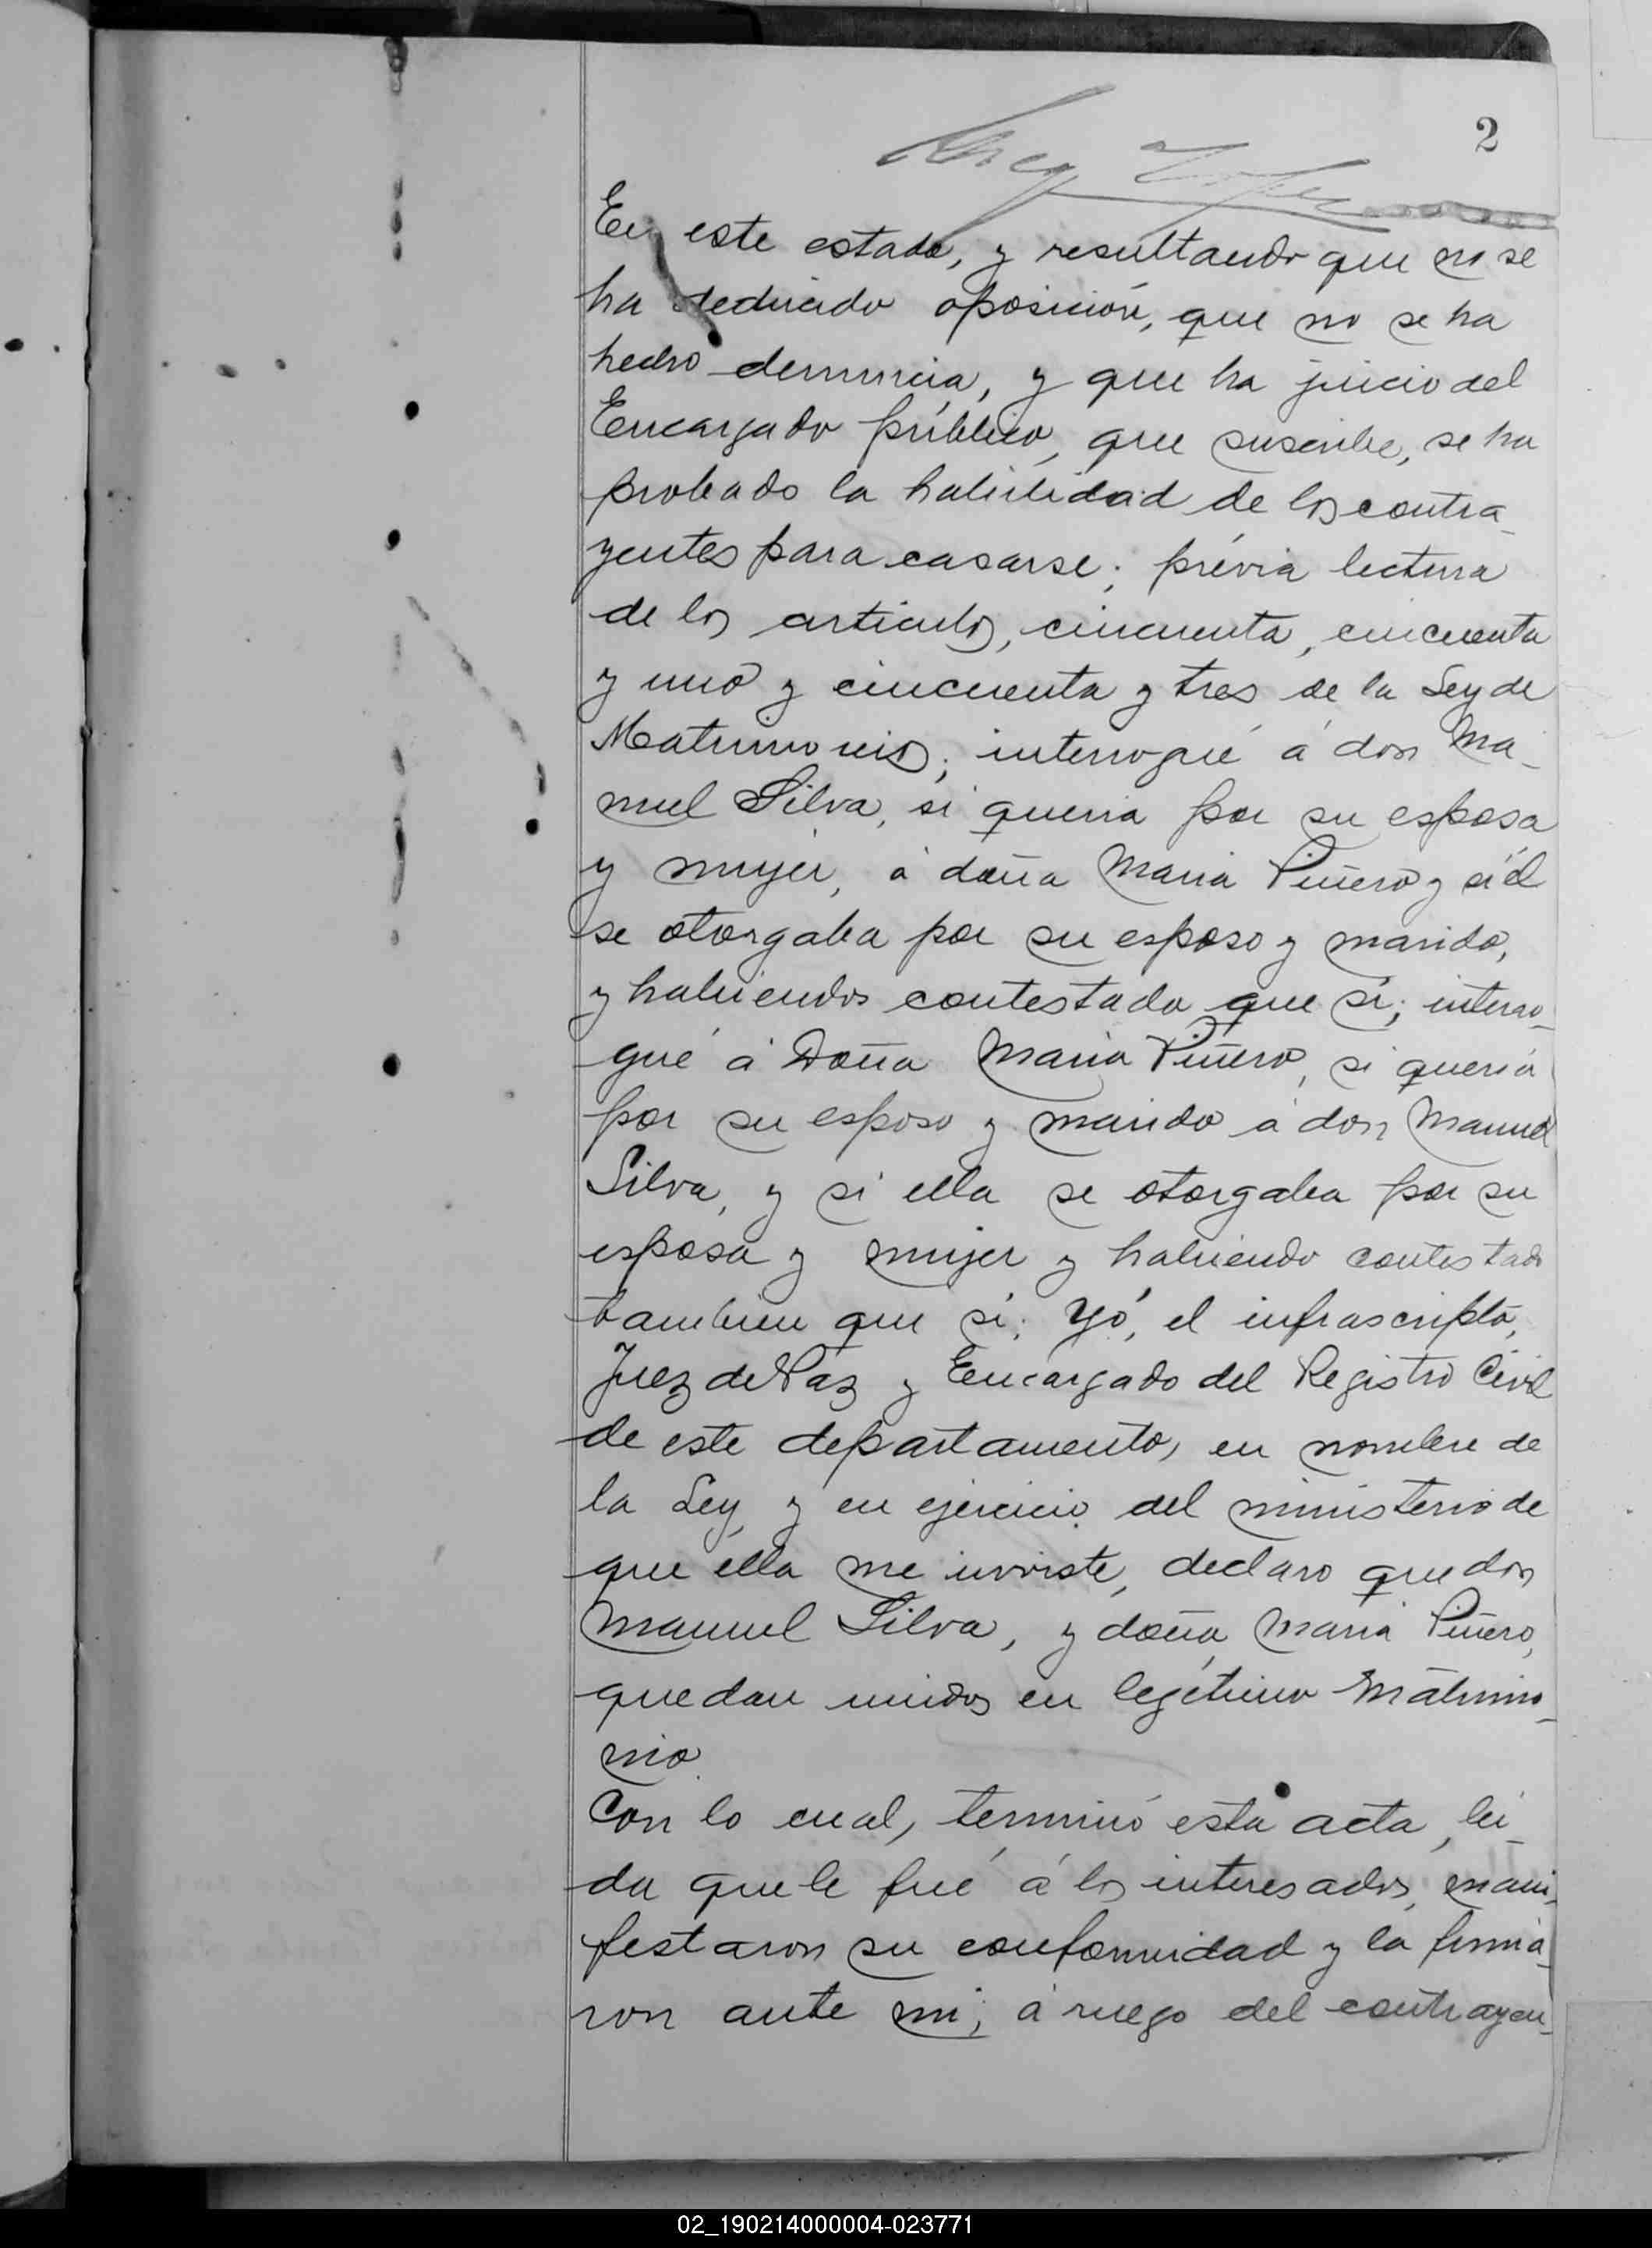 2
En este estado, y resultando que no se
ha deducido oposición, que no se ha
hecho denuncia, y que ha juicio del
Encargado público, que suscribe, se ha
probado la habilidad de los contra-
yentes para casarse; prévia lectura
de los articulos, cincuenta, cincuenta
y uno y cincuenta y tres de la Ley de
Matrimonio; interrogué á don Ma-
nuel Silva, si queria por su esposa
y mujer, á doña Maria Piñero y si él
se otorgaba por su esposo y marido,
y habiendo contestado que si; interro-
gué á Doña Maria Piñero, si queria
por su esposo y marido á don Manuel
Silva, y si ella se otorgaba por su
esposa y mujer y habiendo contestado
tambien que si; Yó, el infrascripto,
Juez de Paz y Encargado del Registro Civil
de este departamento, en nombre de
la Ley, y en ejercicio del ministerio de
que ella me inviste, declaro que don
Manuel Silva, y doña Maria Piñero,
quedan unidos en legítimo Matrimo-
nio.
Con lo cual, terminó esta acta, lei-
da que le fué á los interesados, mani-
festaron su conformidad y la firma-
ron ante mi; á ruego del contrayen-
02_190214000004-023771